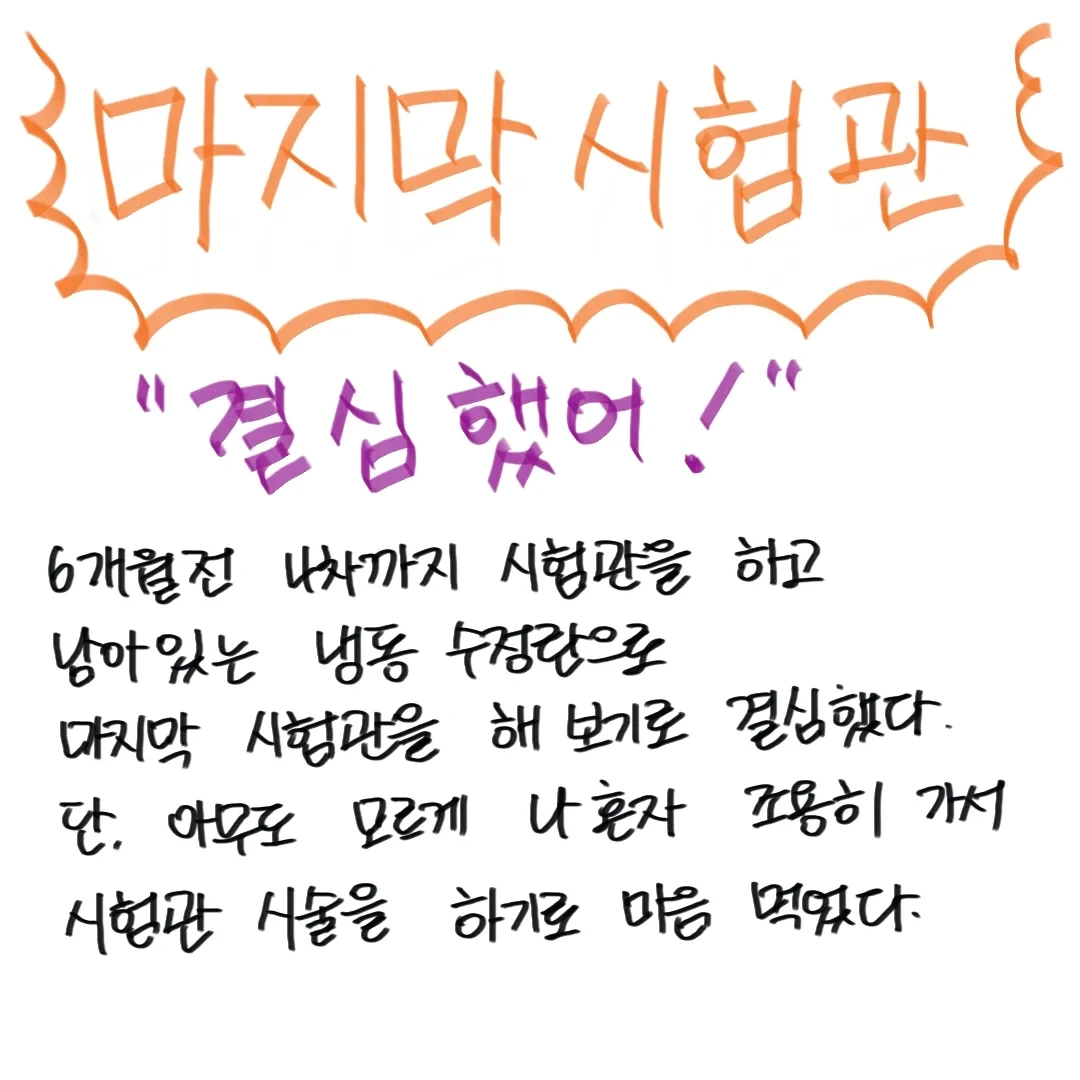 마지막 시험관
"결심했어!"
6개월전 4차까지 시험관을 하고
남아있는 냉동 수정란으로
마지막 시험관을 해 보기로 결심했다.
단, 아무도 모르게 나 혼자 조용히 가서
시험관 시술을 하기로 마음 먹였다.